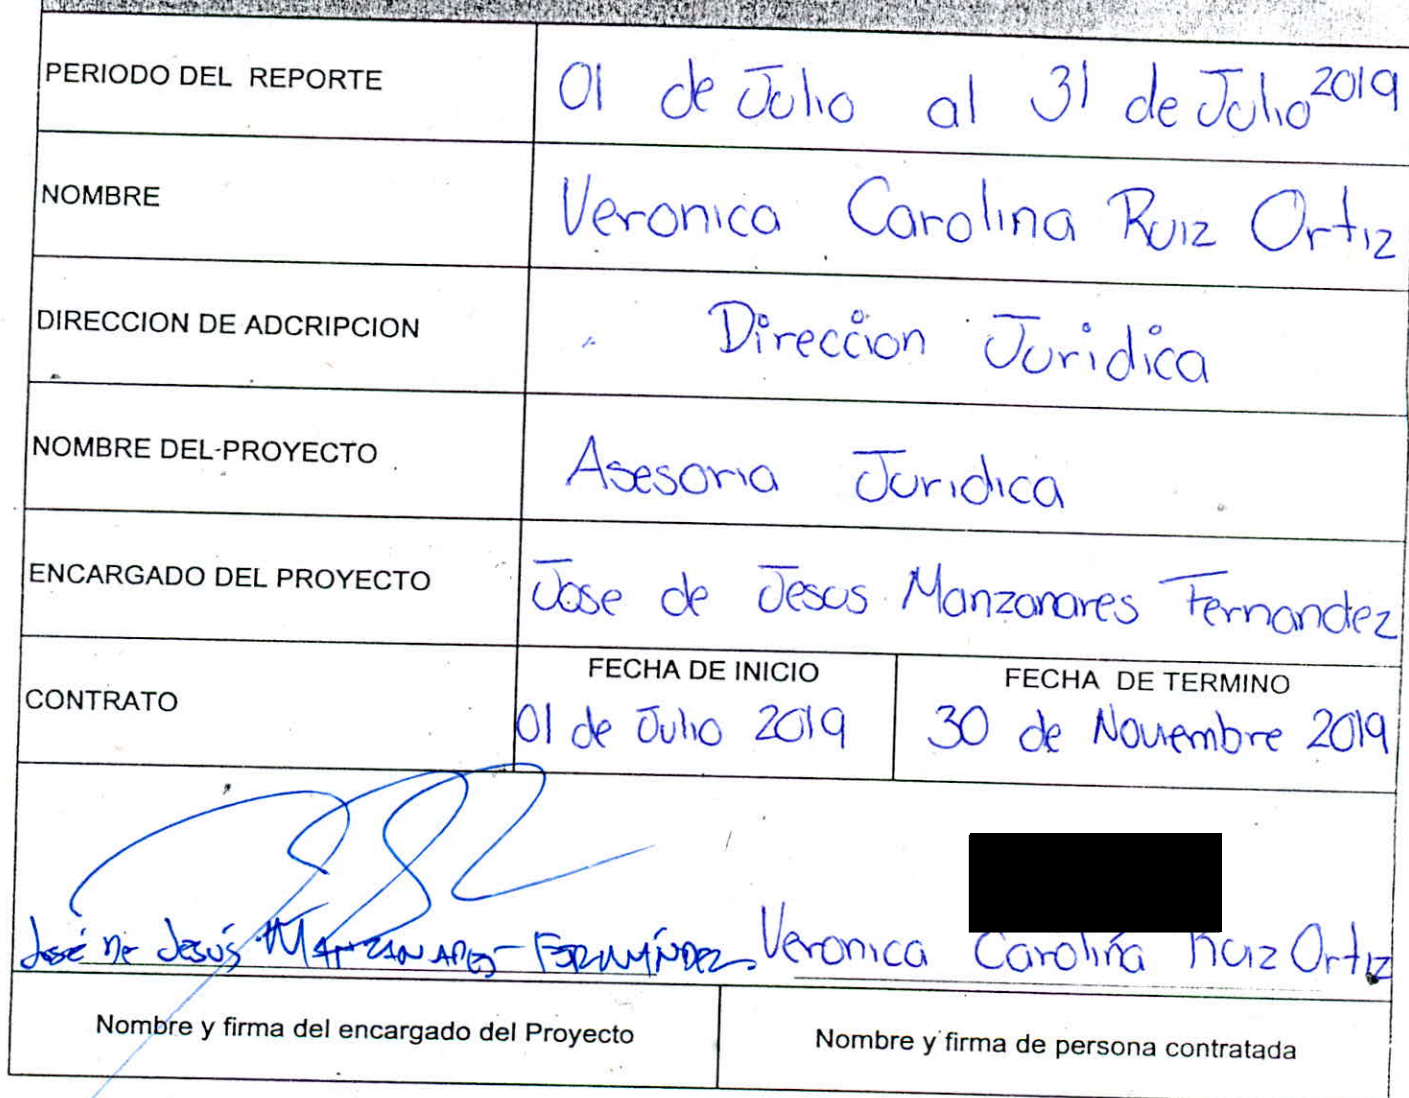 PERIODO DEL REPORTE 01 de Julio al 31 de Julio 2019
NOMBRE Veronica Carolina Ruiz Ortiz
DIRECCION DE ADCRIPCION Direccion Juridica
NOMBRE DEL PROYECTO Asesoria Juridica
ENCARGADO DEL PROYECTO Jose de Jesus Manzanares Fernandez
FECHA DE INICIO FECHA DE TERMINO
CONTRATO 01 de Julio 2019 30 de Noviembre 2019
José De Jesús Manzanares Fernández Veronica Carolina Ruiz Ortiz
Nombre y firma del encargado del Proyecto Nombre y firma de persona contratada